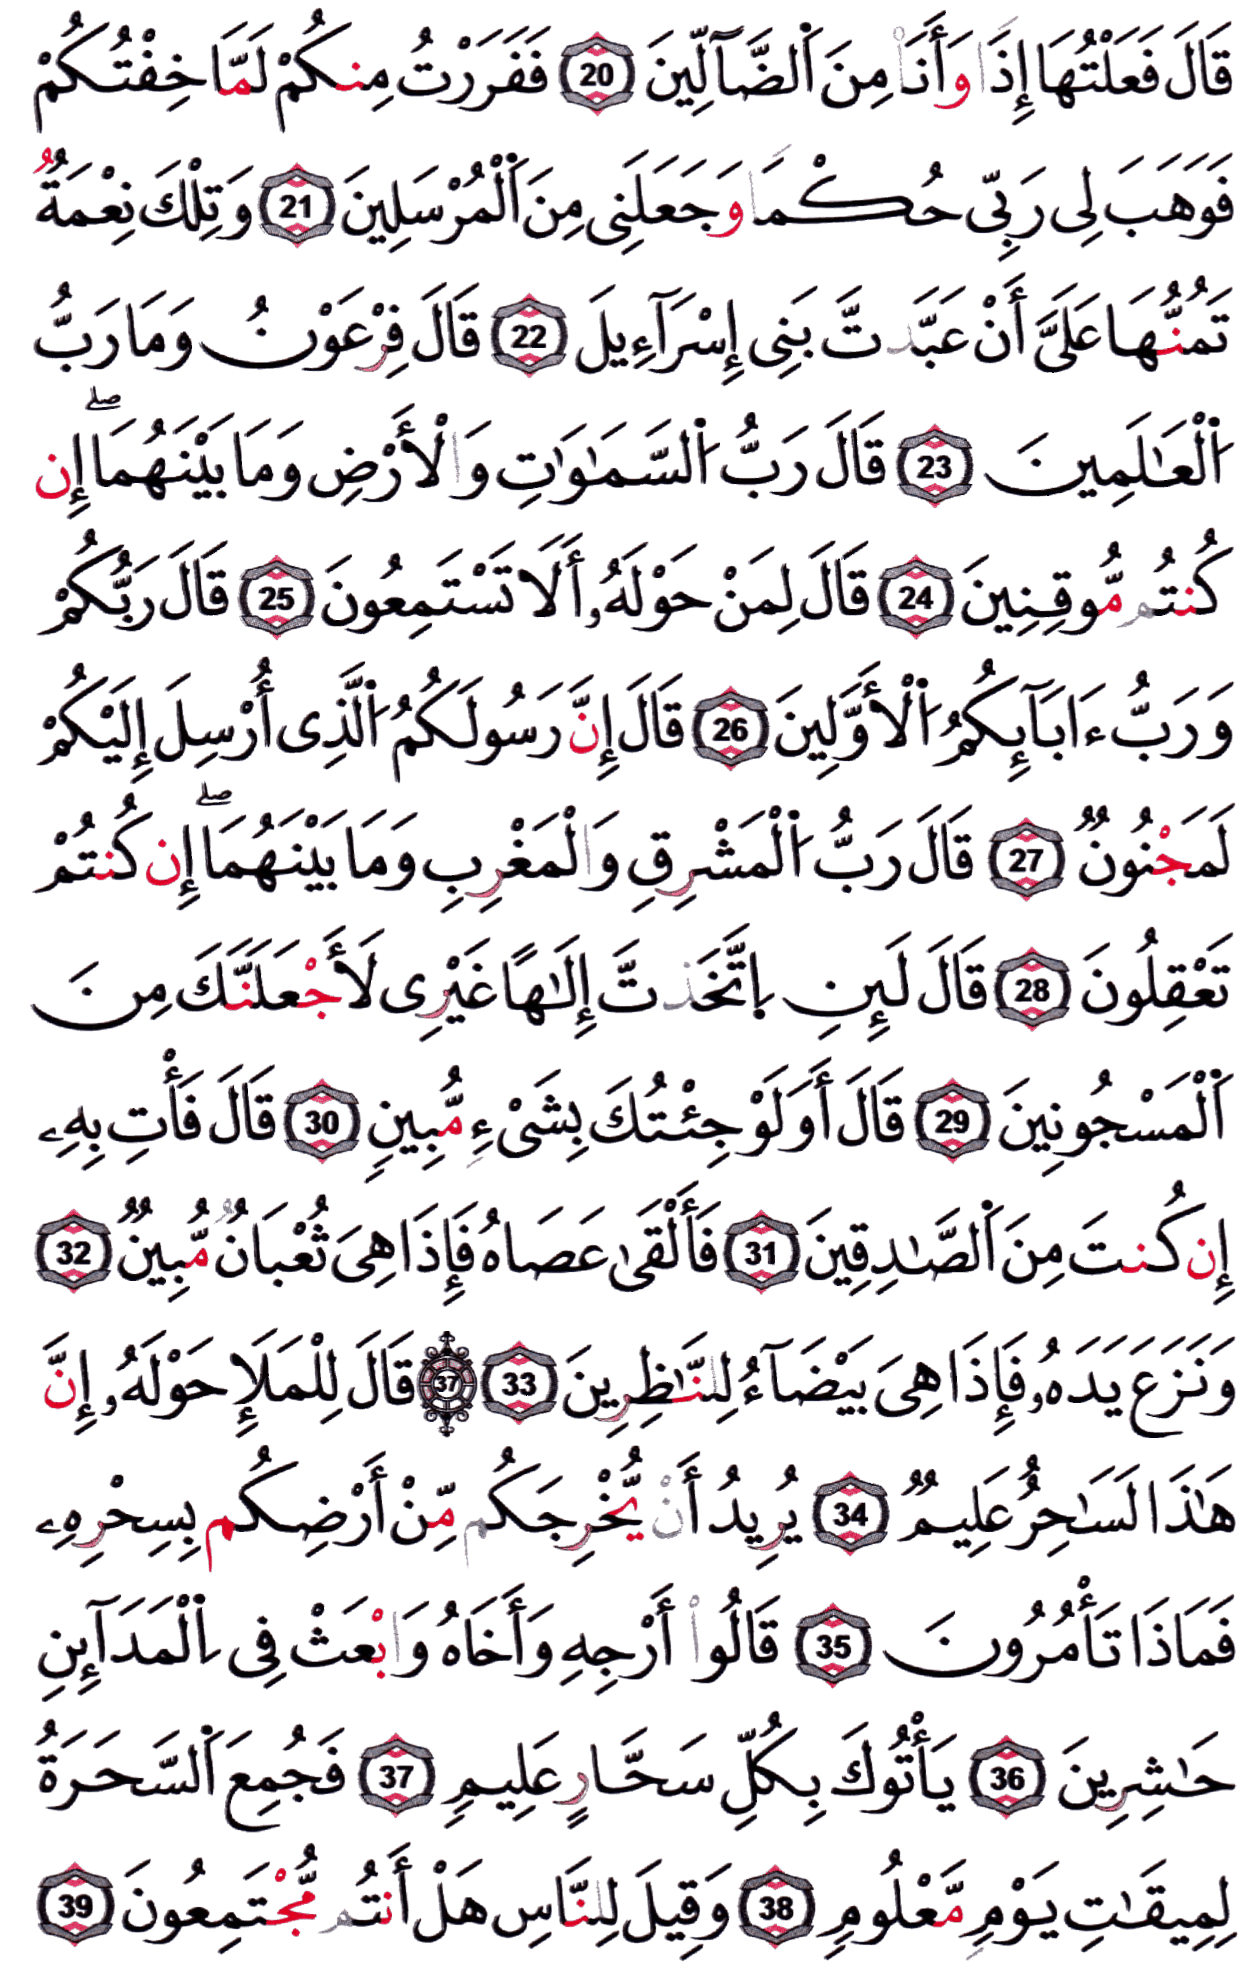 قَالَ فَعَلْتُهَا إِذًا وَأَنَا۠ مِنَ ٱلضَّآلِّينَ 20 فَفَرَرْتُ مِنكُمْ لَمَّا خِفْتُكُمْ
فَوَهَبَ لِى رَبِّى حُكْمًا وَجَعَلَنِى مِنَ ٱلْمُرْسَلِينَ 21 وَتِلْكَ نِعْمَةٌ
تَمُنُّهَا عَلَىَّ أَنْ عَبَّدتَّ بَنِى إِسْرَآءِيلَ 22 قَالَ فِرْعَوْنُ وَمَا رَبُّ
ٱلْعَٰلَمِينَ 23 قَالَ رَبُّ ٱلسَّمَٰوَٰتِ وَالْأَرْضِ وَمَا بَيْنَهُمَاۖ إِن
كُنتُم مُّوقِنِينَ 24 قَالَ لِمَنْ حَوْلَهُۥ أَلَا تَسْتَمِعُونَ 25 قَالَ رَبُّكُمْ
وَرَبُّ ءَابَآئِكُمُ ٱلْأَوَّلِينَ 26 قَالَ إِنَّ رَسُولَكُمُ ٱلَّذِى أُرْسِلَ إِلَيْكُمْ
لَمَجْنُونٌ 27 قَالَ رَبُّ ٱلْمَشْرِقِ وَالْمَغْرِبِ وَمَا بَيْنَهُمَاۖ إِن كُنتُمْ
تَعْقِلُونَ 28 قَالَ لَئِنِ ٱتَّخَذتَّ إِلَٰهًا غَيْرِى لَأَجْعَلَنَّكَ مِنَ
ٱلْمَسْجُونِينَ 29 قَالَ أَوَلَوْ جِئْتُكَ بِشَىْءٍ مُّبِينٍ 30 قَالَ فَأْتِ بِهِۦ
إِن كُنتَ مِنَ ٱلصَّٰدِقِينَ 31 فَأَلْقَىٰ عَصَاهُ فَإِذَا هِىَ ثُعْبَانٌ مُّبِينٌ 32
وَنَزَعَ يَدَهُۥ فَإِذَا هِىَ بَيْضَآءُ لِلنَّٰظِرِينَ 33 37 قَالَ لِلْمَلَإِ حَوْلَهُۥ إِنَّ
هَٰذَا لَسَٰحِرٌ عَلِيمٌ 34 يُرِيدُ أَنْ يُّخْرِجَكُم مِّنْ أَرْضِكُم بِسِحْرِهِۦ
فَمَاذَا تَأْمُرُونَ 35 قَالُوا۟ أَرْجِهِ وَأَخَاهُ وَابْعَثْ فِى ٱلْمَدَآئِنِ
حَٰشِرِينَ 36 يَأْتُوكَ بِكُلِّ سَحَّارٍ عَلِيمٍ 37 فَجُمِعَ ٱلسَّحَرَةُ
لِمِيقَٰتِ يَوْمٍ مَّعْلُومٍ 38 وَقِيلَ لِلنَّاسِ هَلْ أَنتُم مُّجْتَمِعُونَ 39